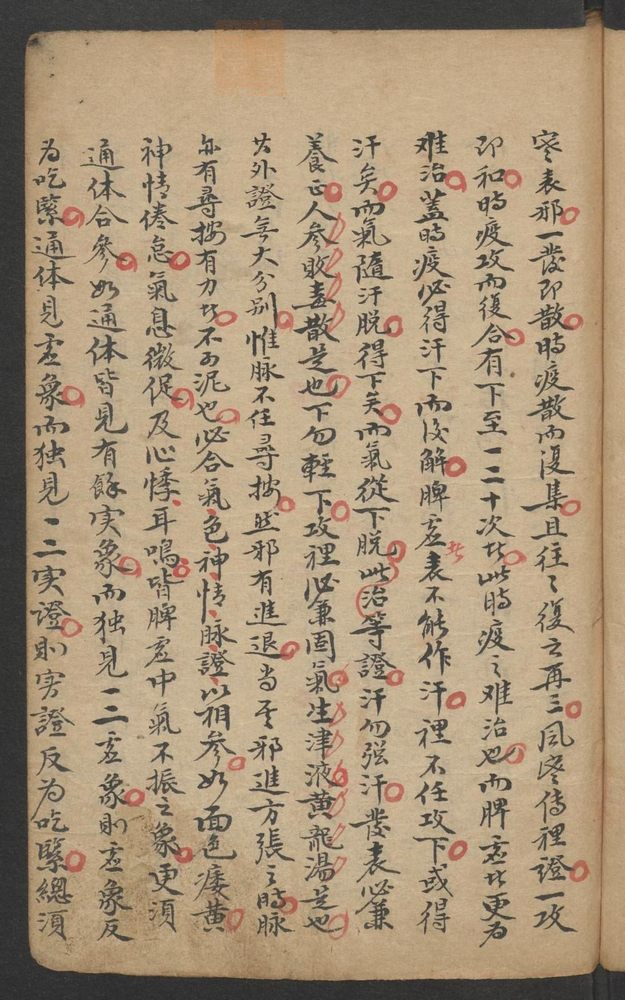 寒表邪一發即散時疫散而復集且往々復云再三風寒傳裡證一攻
即和時疫攻而復合有下至一二十次者此時疫之难治也而脾虚者更为
难治蓋時疫必得汗下而後解脾虚者表不能作汗裡不任攻下或得
汗矣而氣隨汗脱得下矣而氣從下脱此治等證汗勿强汗發表必兼
養正人參敗毒散是也下勿輕下攻裡必兼固氣生津液黄龍湯是也
其外證無大分別惟脉不任尋按然邪有進退当其邪進方張之時脉
亦有尋按有力者不可泥也必合氣色神情脉證以相參如面色痿黄
神情倦怠氣息微促及心悸耳鳴皆脾虚中氣不振之象更須
通体合參如通体皆見有餘实象而独見一二虚象則虚象反
为吃緊通体見虚象而独見一二实證則实證反为吃緊總須